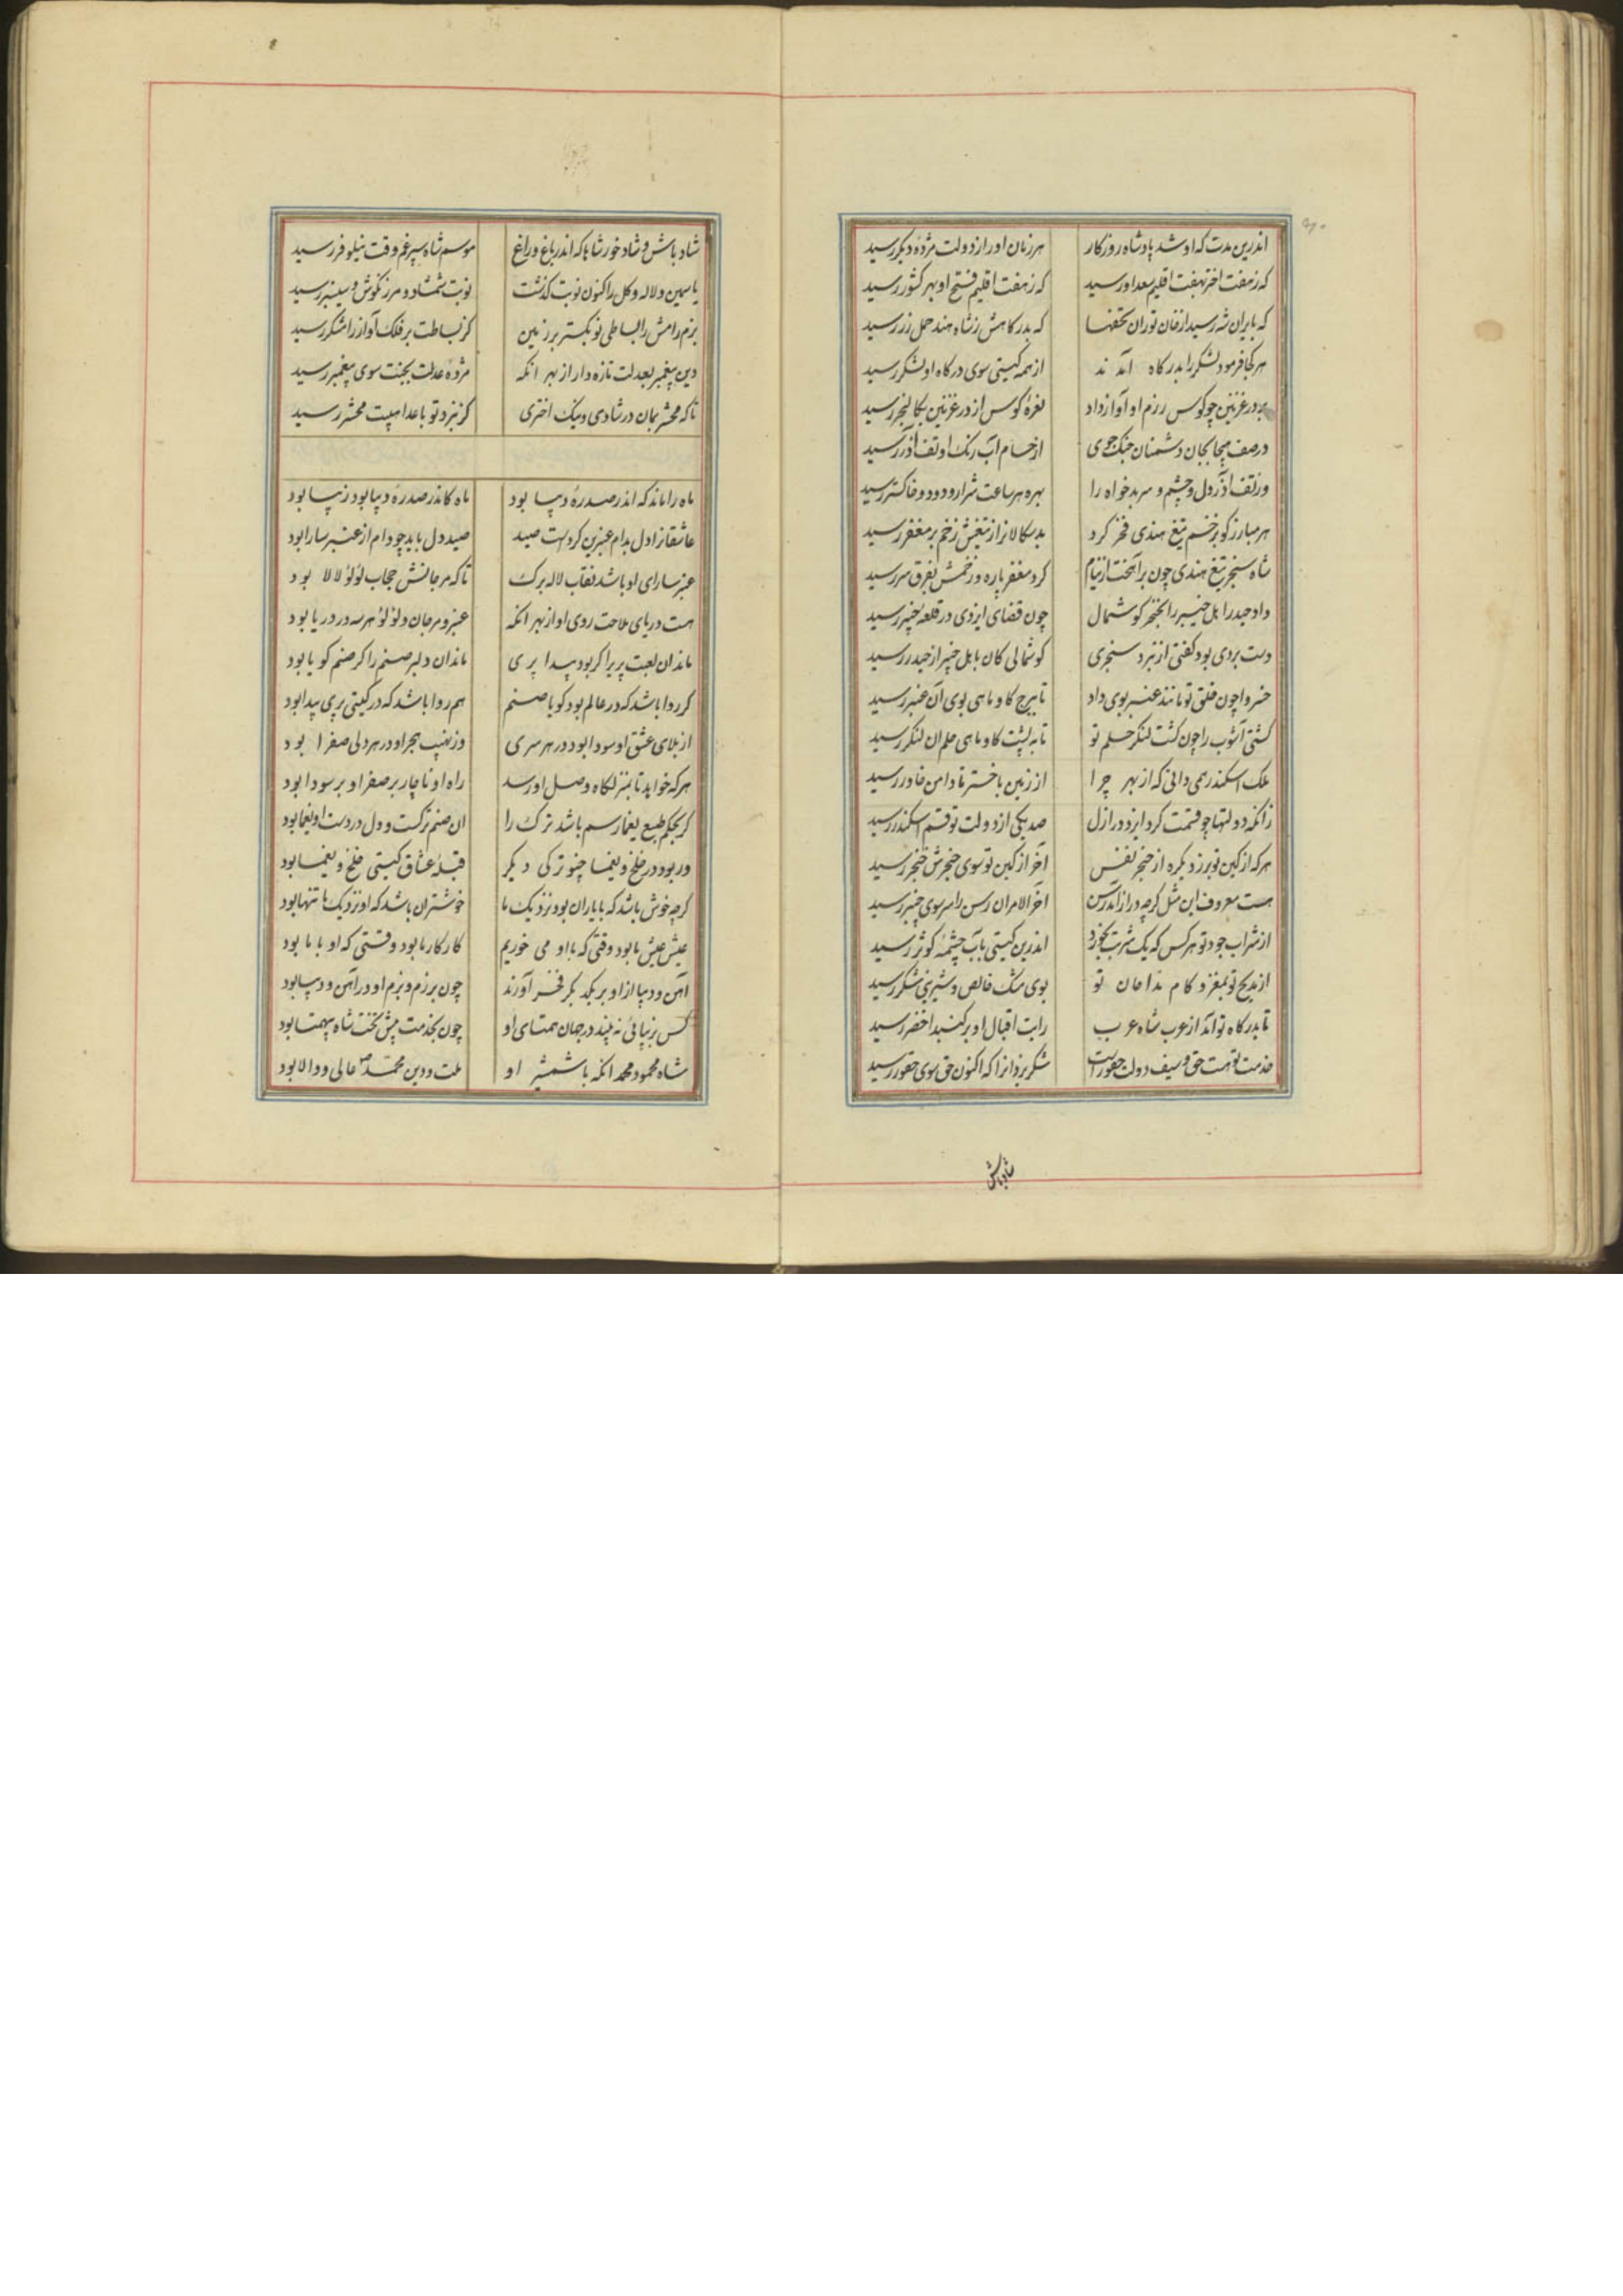 اندرین مدت که او شد پادشاه روزکار هر زمان او را ز دولت مژده دیکر رسید
که ز هفت اختر بهفت اقلیم سعد او رسید که ز هفت اقلیم فتح او بهر کشور رسید
که بایران شه رسید از خان توران تحفها که بدرکاهش ز شاه هند حمل زر رسید
هر کجا فرمود لشکر را بدرکاه آمدند از همه کیتی سوی درکاه او لشکر رسید
بر در غزنین چو کوس رزم او آواز داد نعره کوس از در غزنین بکالنجر رسید
در صف هیجا بجان دشمنان جنک جوی از حسام آب رنک او تف آذر رسید
وز تف آذر دل و چشم و سر بدخواه را بهره هر ساعت شرار و دود و خاکستر رسید
هر مبارز کو بزخم تیغ هندی فخر کرد بدسکالانرا ز تیغش زخم بر مغفر رسید
شاه سنجر تیغ هندی چون برآهخت از نیام کرد مغفر پاره وز خمش بفرق سر رسید
داد حیدر اهل خیبر را بخنجر کوشمال چون قضای ایزدی در قلعه خیبر رسید
دست بردی بود کفتی از نبرد سنجری کوشمالی کان باهل خیبر از حیدر رسید
خسروا چون خلق تو مانند عنبر بوی داد تا ببرج کاو و ماهی بوی آن عنبر رسید
کشتی آشوب را چون کشت لنکر حلم تو تا به پشت کاو و ماهی حلم ان لنکر رسید
ملک اسکندر همی دانی که از بهر چرا از زمین باختر تا دامن خاور رسید
زانکه دولتها چو قسمت کرد ایزد در ازل صد یکی از دولت تو قسم اسکندر رسید
هر که از کین تو برزد یکره از خنجر نفس آخر از کین تو سوی خنجرش خنجر رسید
هست معروف این مثل کرچه دراز آمد رسن آخر الامر ان رسن را سر سوی چنبر رسید
از شراب جود تو هر کس که یک شربت بخورد اندرین کیتی بآب چشمه کوثر رسید
از مدیح تو بمغز و کام مداحان تو بوی مشک خالص و شیرینی شکر رسید
تا بدرکاه تو آمد از عرب شاه عرب رایت اقبال او بر کنبد اخضر رسید
خدمت تو هست حق و سیف دولت حقور است شکر یزدانرا که اکنون حق سوی حقور رسید
شادباش
شاد باش و شاد خور شاها که اندر باغ و راغ موسم شاه سپرغم وقت نیلوفر رسید
یاسمین و لاله و کل را کنون نوبت کذشت نوبت شمشاد و مرزنکوش و سیسنبر رسید
بزم و رامش را بساطی نو بکستر بر زمین کز بساطت بر فلک آواز رامشکر رسید
دین پیغمبر بعدلت تازه دار از بهر انکه مژده عدلت بجنت سوی پیغمبر رسید
تا که محشر بمان در شادی و نیک اختری کز نبرد تو باعدا هیبت محشر رسید
ماه را ماند که اندر صدره دیبا بود ماه کاندر صدره دیبا بود زیبا بود
عاشقانرا دل بدام عنبرین کردست صید صید دل باید چو دام از عنبر سارا بود
عنبر سارای او باشد نقاب لاله برک تا که مرجانش حجاب لؤلؤ لالا بود
هست دریای ملاحت روی او از بهر انکه عنبر و مرجان و لؤلؤ هر سه در دریا بود
ماند ان لعبت پریرا کر بود پیدا پری ماند ان دلبر صنم را کر صنم کویا بود
کر روا باشد که در عالم بود کویا صنم هم روا باشد که در کیتی پری پیدا بود
از بلای عشق او سودا بود در هر سری وز نهیب هجر او در هر دلی صفرا بود
هر که خواهد تا بمنزلکاه وصل او رسد راه او ناچار بر صفرا و بر سودا بود
کر بحکم طبع یغما رسم باشد ترک را ان صنم ترکست و دل در دست او یغما بود
ور بود در خلخ و یغما چنو ترکی دیکر قبله عشاق کیتی خلخ و یغما بود
کرچه خوش باشد که با یاران بود نزدیک ما خوشتر ان باشد که او نزدیک ما تنها بود
عیش عیش ما بود وقتی که با او می خوریم کار کار ما بود وقتی که او با ما بود
آهن و دیبا از او بر یکدیکر فخر آورند چون برزم و بزم او در آهن و دیبا بود
کس بزیبائی نه بیند در جهان همتای او چون بخدمت پیش تخت شاه بیهمتا بود
شاه محمود محمد انکه با شمشیر او ملت و دین محمد ص عالی و والا بود